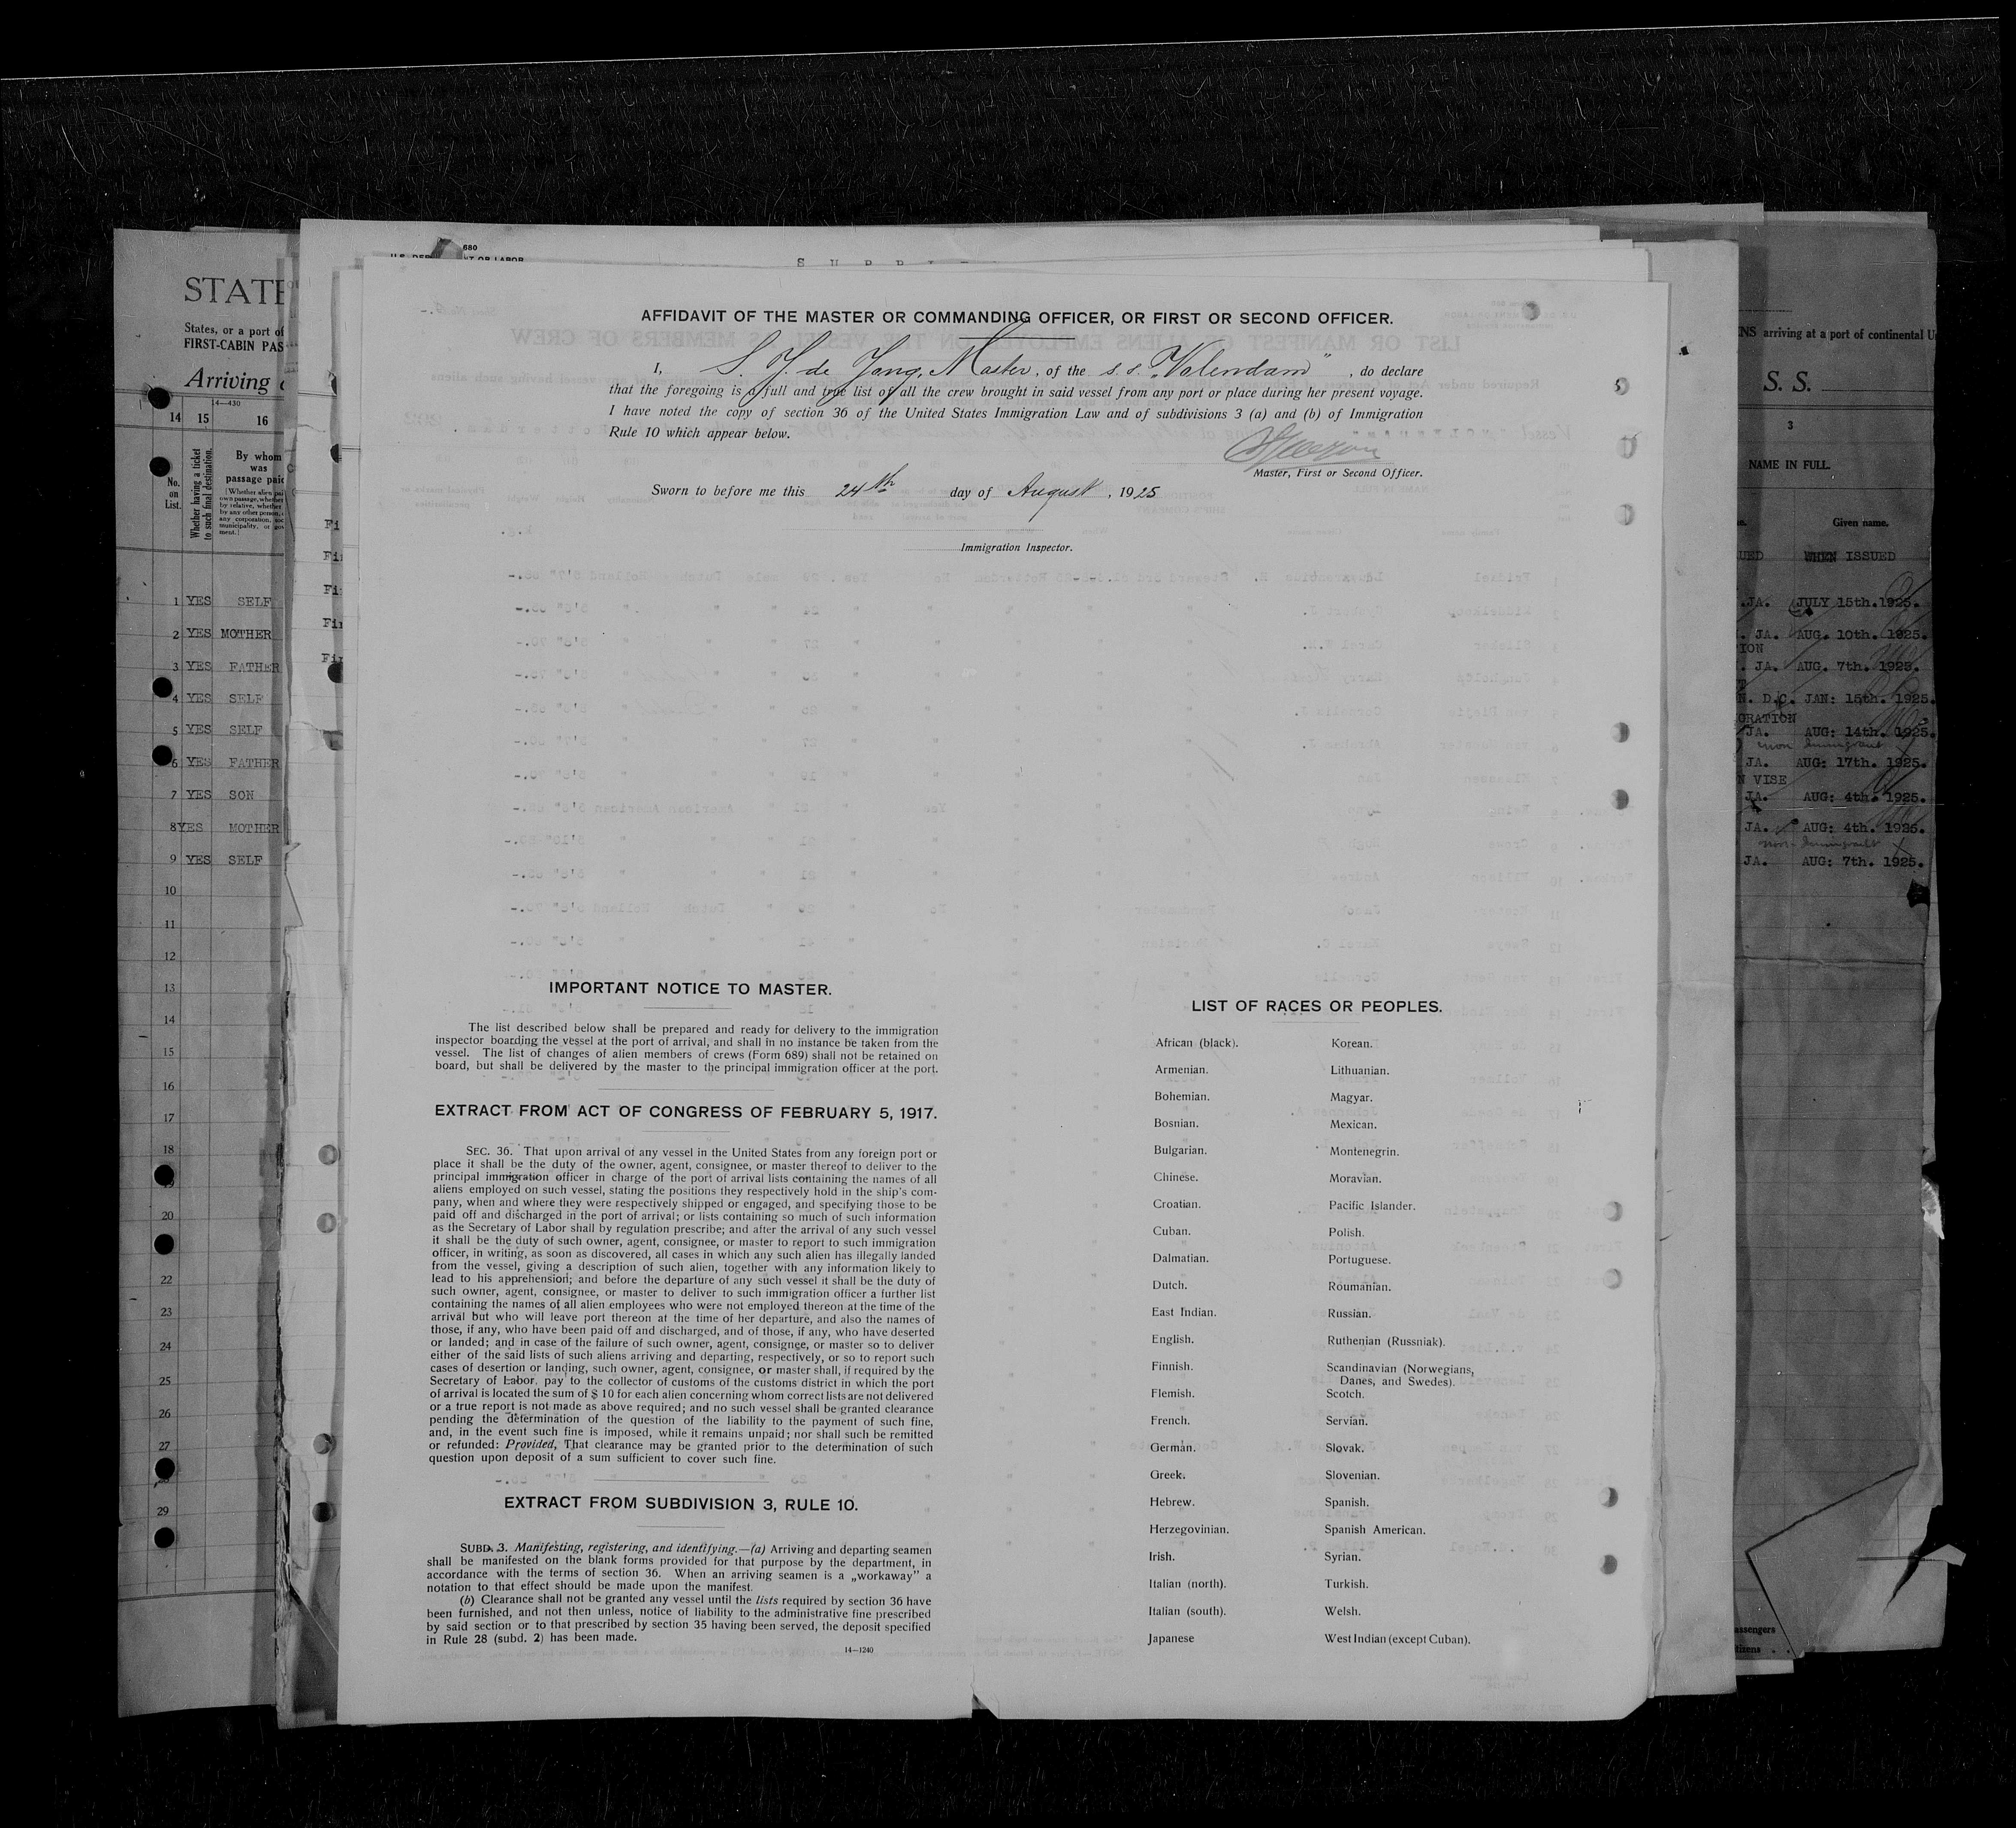 AFFIDAVIT OF THE MASTER OR COMMANDING OFFICER, OR FIRST OR SECOND OFFICER.
I, S. J. de Jong, Master, of the s.s. "Volendam", do declare
that the foregoing is a full and true list of all the crew brought in said vessel from any port or place during her present voyage.
I have noted the copy of section 36 of the United States Immigration Law and of subdivisions 3 (a) and (b) of Immigration
Rule 10 which appear below.
Master, First or Second Officer.
Sworn to before me this 24th day of August, 1925
Immigration Inspector.
IMPORTANT NOTICE TO MASTER.
The list described below shall be prepared and ready for delivery to the immigration
inspector boarding the vessel at the port of arrival, and shall in no instance be taken from the
vessel. The list of changes of alien members of crews (Form 689) shall not be retained on
board, but shall be delivered by the master to the principal immigration officer at the port.
EXTRACT FROM ACT OF CONGRESS OF FEBRUARY 5, 1917.
SEC. 36. That upon arrival of any vessel in the United States from any foreign port or
place it shall be the duty of the owner, agent, consignee, or master thereof to deliver to the
principal immigration officer in charge of the port of arrival lists containing the names of all
aliens employed on such vessel, stating the positions they respectively hold in the ship's com-
pany, when and where they were respectively shipped or engaged, and specifying those to be
paid off and discharged in the port of arrival; or lists containing so much of such information
as the Secretary of Labor shall by regulation prescribe; and after the arrival of any such vessel
it shall be the duty of such owner, agent, consignee, or master to report to such immigration
officer, in writing, as soon as discovered, all cases in which any such alien has illegally landed
from the vessel, giving a description of such alien, together with any information likely to
lead to his apprehension; and before the departure of any such vessel it shall be the duty of
such owner, agent, consignee, or master to deliver to such immigration officer a further list
containing the names of all alien employees who were not employed thereon at the time of the
arrival but who will leave port thereon at the time of her departure, and also the names of
those, if any, who have been paid off and discharged, and of those, if any, who have deserted
or landed; and in case of the failure of such owner, agent, consignee, or master so to deliver
either of the said lists of such aliens arriving and departing, respectively, or so to report such
cases of desertion or landing, such owner, agent, consignee, or master shall, if required by the
Secretary of Labor, pay to the collector of customs of the customs district in which the port
of arrival is located the sum of $ 10 for each alien concerning whom correct lists are not delivered
or a true report is not made as above required; and no such vessel shall be granted clearance
pending the determination of the question of the liability to the payment of such fine,
and, in the event such fine is imposed, while it remains unpaid; nor shall such be remitted
or refunded: Provided, That clearance may be granted prior to the determination of such
question upon deposit of a sum sufficient to cover such fine.
EXTRACT FROM SUBDIVISION 3, RULE 10.
SUBD. 3. Manifesting, registering, and identifying.—(a) Arriving and departing seamen
shall be manifested on the blank forms provided for that purpose by the department, in
accordance with the terms of section 36. When an arriving seamen is a „workaway” a
notation to that effect should be made upon the manifest.
(b) Clearance shall not be granted any vessel until the lists required by section 36 have
been furnished, and not then unless, notice of liability to the administrative fine prescribed
by said section or to that prescribed by section 35 having been served, the deposit specified
in Rule 28 (subd. 2) has been made.
14—1240
LIST OF RACES OR PEOPLES.
African (black). Korean.
Armenian. Lithuanian.
Bohemian. Magyar.
Bosnian. Mexican.
Bulgarian. Montenegrin.
Chinese. Moravian.
Croatian. Pacific Islander.
Cuban. Polish.
Dalmatian. Portuguese.
Dutch. Roumanian.
East Indian. Russian.
English. Ruthenian (Russniak).
Finnish. Scandinavian (Norwegians,
Danes, and Swedes).
Flemish. Scotch.
French. Servian.
German. Slovak.
Greek. Slovenian.
Hebrew. Spanish.
Herzegovinian. Spanish American.
Irish. Syrian.
Italian (north). Turkish.
Italian (south). Welsh.
Japanese West Indian (except Cuban).
STATE
States, or a port of
FIRST-CABIN PAS
Arriving
14—430
14 15 16
No. on List.
Whether having a ticket to such final destination.
By whom was passage paid
1 YES SELF
2 YES MOTHER
3 YES FATHER
4 YES SELF
5 YES SELF
6 YES FATHER
7 YES SON
8 YES MOTHER
9 YES SELF
10
11
12
13
14
15
16
17
18
20
22
23
24
25
26
27
29
arriving at a port of continental U
S. S.
3
NAME IN FULL.
Given name.
WHEN ISSUED
JA. JULY 15th. 1925.
JA. AUG. 10th. 1925.
JA. AUG. 7th. 1925.
D.C. JAN: 15th. 1925.
JA. AUG: 14th. 1925.
non immigrant
JA. AUG: 17th. 1925.
VISE
JA. AUG: 4th. 1925.
JA. AUG: 4th. 1925.
non immigrant
JA. AUG: 7th. 1925.